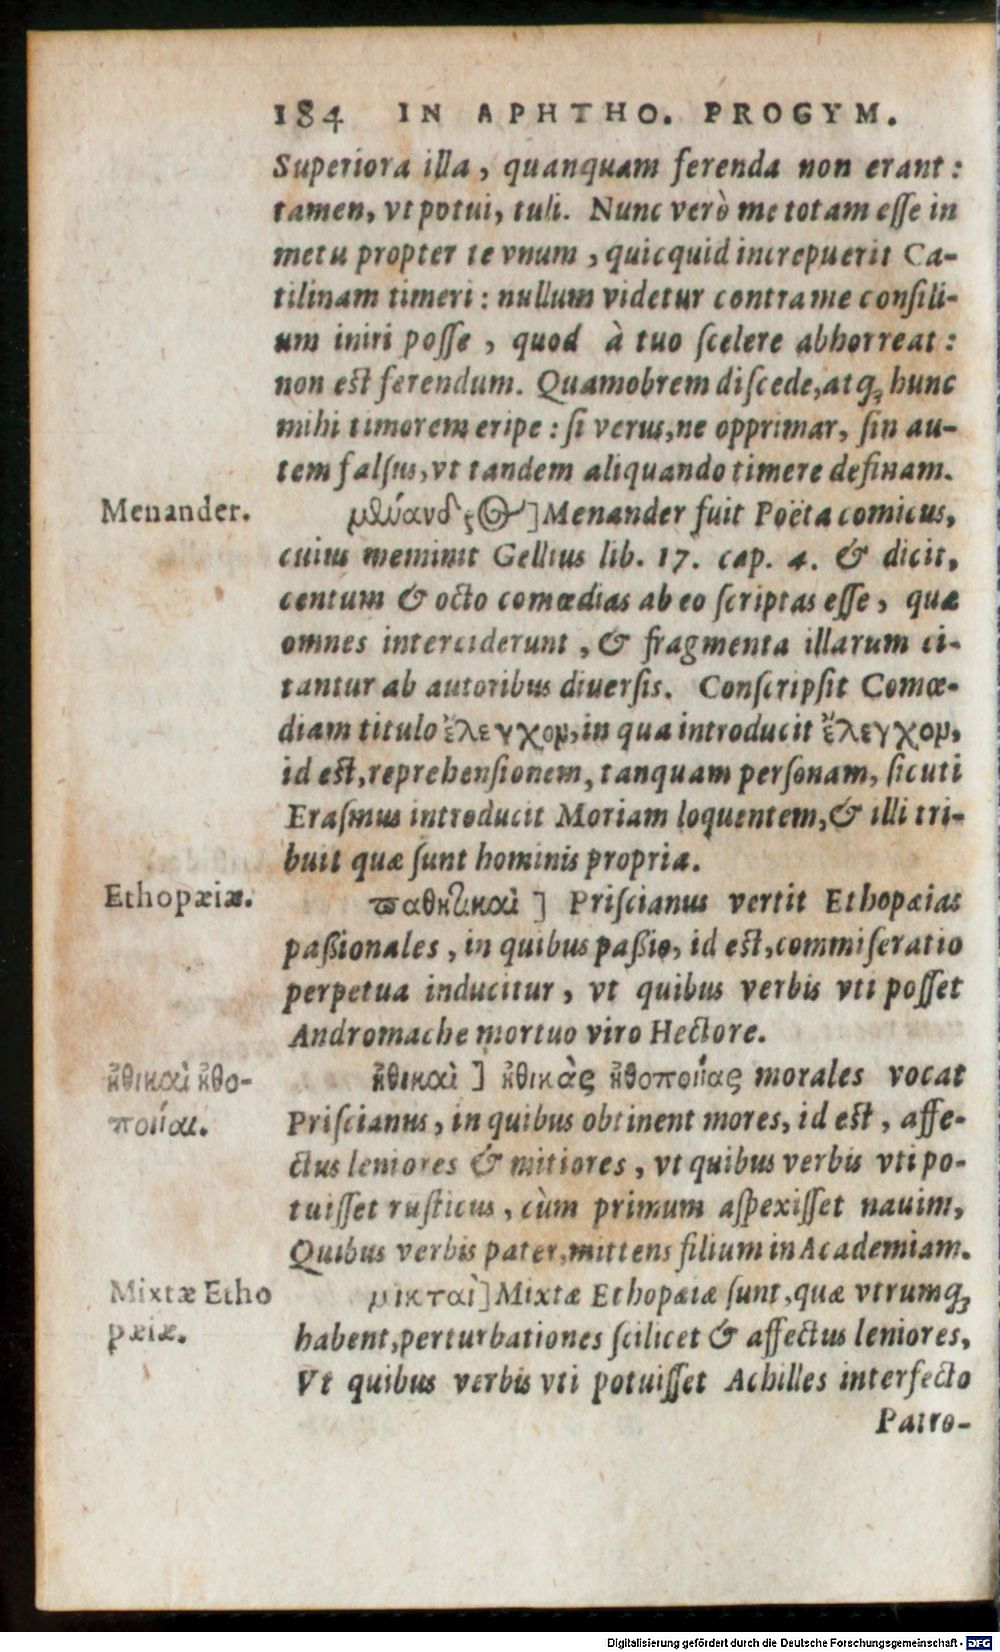 184 IN APHTHO. PROGYM.
Superiora illa, quanquam ferenda non erant:
tamen, vt potui, tuli. Nunc verò me totam eſſe in
metu propter te vnum, quicquid increpuerit Ca-
tilinam timeri: nullum videtur contra me conſili-
um iniri poſſe, quod à tuo ſcelere abhorreat:
non est ferendum. Quamobrem diſcede, atq; hunc
mihi timorem eripe: ſi verus, ne opprimar, ſin au-
tem falſus, vt tandem aliquando timere deſinam.
Menander.
μένανδρος] Menander fuit Poëta comicus,
cuius meminit Gellius lib. 17. cap. 4. & dicit,
centum & octo comœdias ab eo ſcriptas eſſe, quæ
omnes interciderunt, & fragmenta illarum ci-
tantur ab autoribus diuerſis. Conſcripſit Comœ-
diam titulo ἔλεγχον, in qua introducit ἔλεγχον,
id est, reprehenſionem, tanquam perſonam, ſicuti
Eraſmus introducit Moriam loquentem, & illi tri-
buit quæ ſunt hominis propria.
Ethopæiæ.
παθητικαὶ] Priſcianus vertit Ethopæias
paßionales, in quibus paßio, id est, commiſeratio
perpetua inducitur, vt quibus verbis vti poſſet
Andromache mortuo viro Hectore.
ἠθικαὶ ἠθο-
ποιίαι.
ἠθικαὶ] ἠθικὰς ἠθοποιίας morales vocat
Priſcianus, in quibus obtinent mores, id est, affe-
ctus leniores & mitiores, vt quibus verbis vti po-
tuiſſet ruſticus, cùm primum aſpexiſſet nauim,
Quibus verbis pater, mittens filium in Academiam.
Mixtæ Etho
pæiæ.
μικταὶ] Mixtæ Ethopæiæ ſunt, quæ vtrumq;
habent, perturbationes ſcilicet & affectus leniores,
Vt quibus verbis vti potuiſſet Achilles interfecto
Patro-
Digitalisierung gefördert durch die Deutsche Forschungsgemeinschaft - DFG